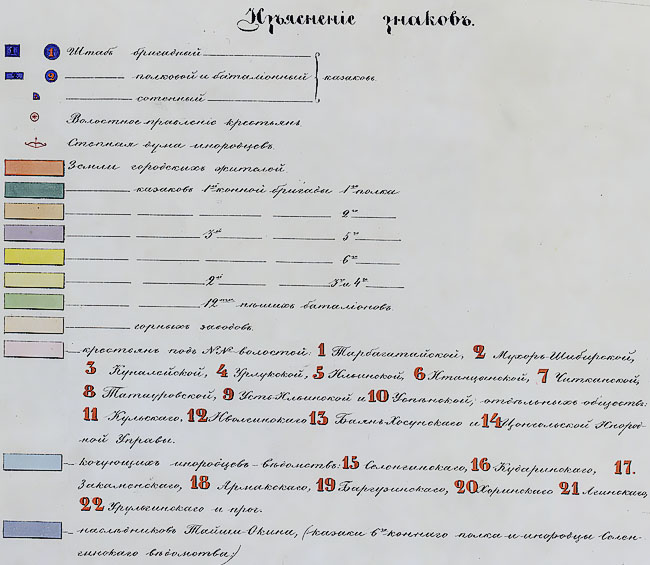 Изъясненіе знаковъ.
1 1 Штабъ бригадный
2 полковой и баталіонный казаковъ
сотенный
Волостное правленіе крестьянъ
Степная дума инородцевъ.
Земли городскихъ жителей
казаковъ 1й конной бригады 1го полка
2го
3й 5го
6го
2й 3го и 4го
12ти пѣшихъ баталіоновъ.
горныхъ заводовъ.
крестьянъ подъ №№ волостей: 1 Тарбагатайской, 2 Мухоръ-Шибирской,
3 Куналейской, 4 Урлукской, 5 Ильинской, 6 Итанцынской, 7 Читканской,
8 Татауровской, 9 Усть-Ильинской и 10 Успѣнской; отдѣльныхъ обществъ:
11 Кульскаго, 12 Иволгинскаго 13 Баянъ-Хосунскаго и 14 Цонгольской Инород-
ной Управы.
кочующихъ инородцевъ-вѣдомствъ: 15 Селенгинскаго, 16 Кударинскаго, 17.
Закаменскаго, 18 Армакскаго, 19 Баргузинскаго, 20 Хоринскаго 21 Агинскаго,
22 Урульгинскаго и проч.
наслѣдниковъ Тайши Окина, (казаки 6го коннаго полка и инородцы Селен-
гинскаго вѣдомства:)